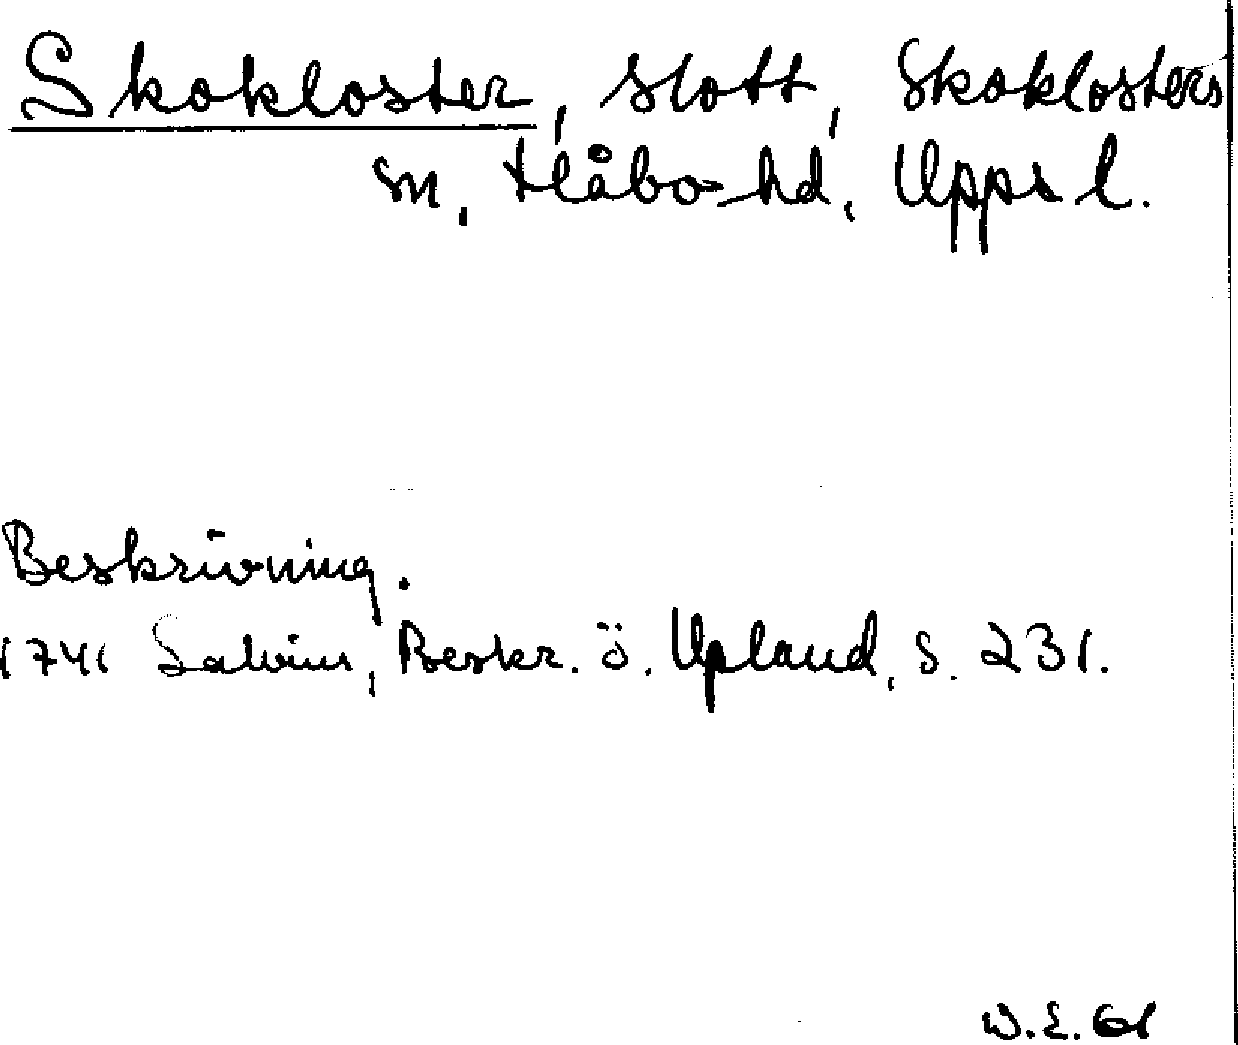 Skokloster, slott, Skoklosters
sn, Håbo hd, Upps l.
Beskrivning.
1741 Salvius, Beskr. ö. Upland, s. 231.
W.E. 61